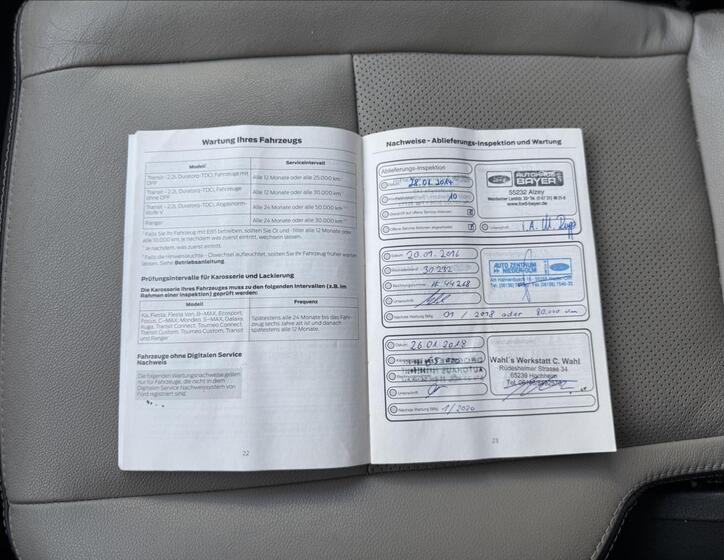 Wartung Ihres Fahrzeugs
Modell Serviceintervall
Transit - 2.2L Duratorq-TDCi, Fahrzeuge mit DPF Alle 12 Monate oder alle 25.000 km
Transit - 2.2L Duratorq-TDCi, Fahrzeuge ohne DPF Alle 12 Monate oder alle 30.000 km
Transit - 2.2L Duratorq-TDCi, Abgasnorm-Stufe V Alle 24 Monate oder alle 50.000 km
Ranger Alle 24 Monate oder alle 30.000 km
Falls Sie Ihr Fahrzeug mit E85 betreiben, sollten Sie Öl und -filter alle 12 Monate oder
alle 10.000 km, je nachdem was zuerst eintritt, wechseln lassen.
Je nachdem, was zuerst eintritt.
Falls die Hinweisleuchte - Ölwechsel aufleuchtet, sollten Sie Ihr Fahrzeug früher warten
lassen. Siehe Betriebsanleitung.
Prüfungsintervalle für Karosserie und Lackierung
Die Karosserie Ihres Fahrzeugs muss zu den folgenden Intervallen (z.B. im
Rahmen einer Inspektion) geprüft werden:
Modell Frequenz
Ka, Fiesta, Fiesta Van, B-MAX, Ecosport,
Focus, C-MAX, Mondeo, S-MAX, Galaxy,
Kuga, Transit Connect, Tourneo Connect,
Transit Custom, Tourneo Custom, Transit
und Ranger
Spätestens alle 24 Monate bis das Fahrzeug
sechs Jahre alt ist und danach
spätestens alle 12 Monate.
Fahrzeuge ohne Digitalen Service
Nachweis
Die folgenden Wartungsnachweise gelten
nur für Fahrzeuge, die nicht in dem
Digitalen Service Nachweissystem von
Ford registriert sind.
22
Nachweise - Ablieferungs-Inspektion und Wartung
Ablieferungs-Inspektion
28.01.2014
10
AUTOHAUS
BAYER
55232 Alzey
www.ford-bayer.de
Unterschrift
Datum 20.01.2016
30292
Rechnungsnummer 44218
Unterschrift
AUTO ZENTRUM
NIEDER-OLM
Nächste Wartung fällig 01/2018 oder 80.000 km
Datum 26.01.2018
Unterschrift
Wahl's Werkstatt C. Wahl
Rüdesheimer Strasse 34
65239 Hochheim
Nächste Wartung fällig 1/2020
23